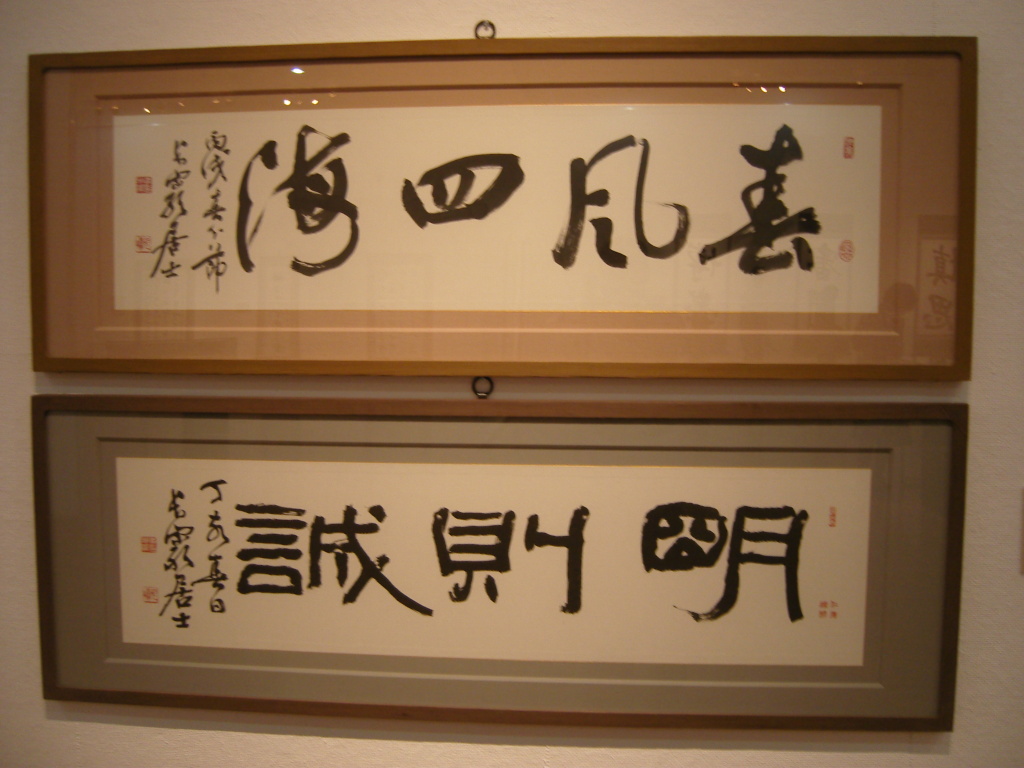 春風四海
丙戌春分節
居士
明則誠
丁亥春日
居士